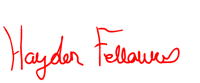 Hayden Fellows